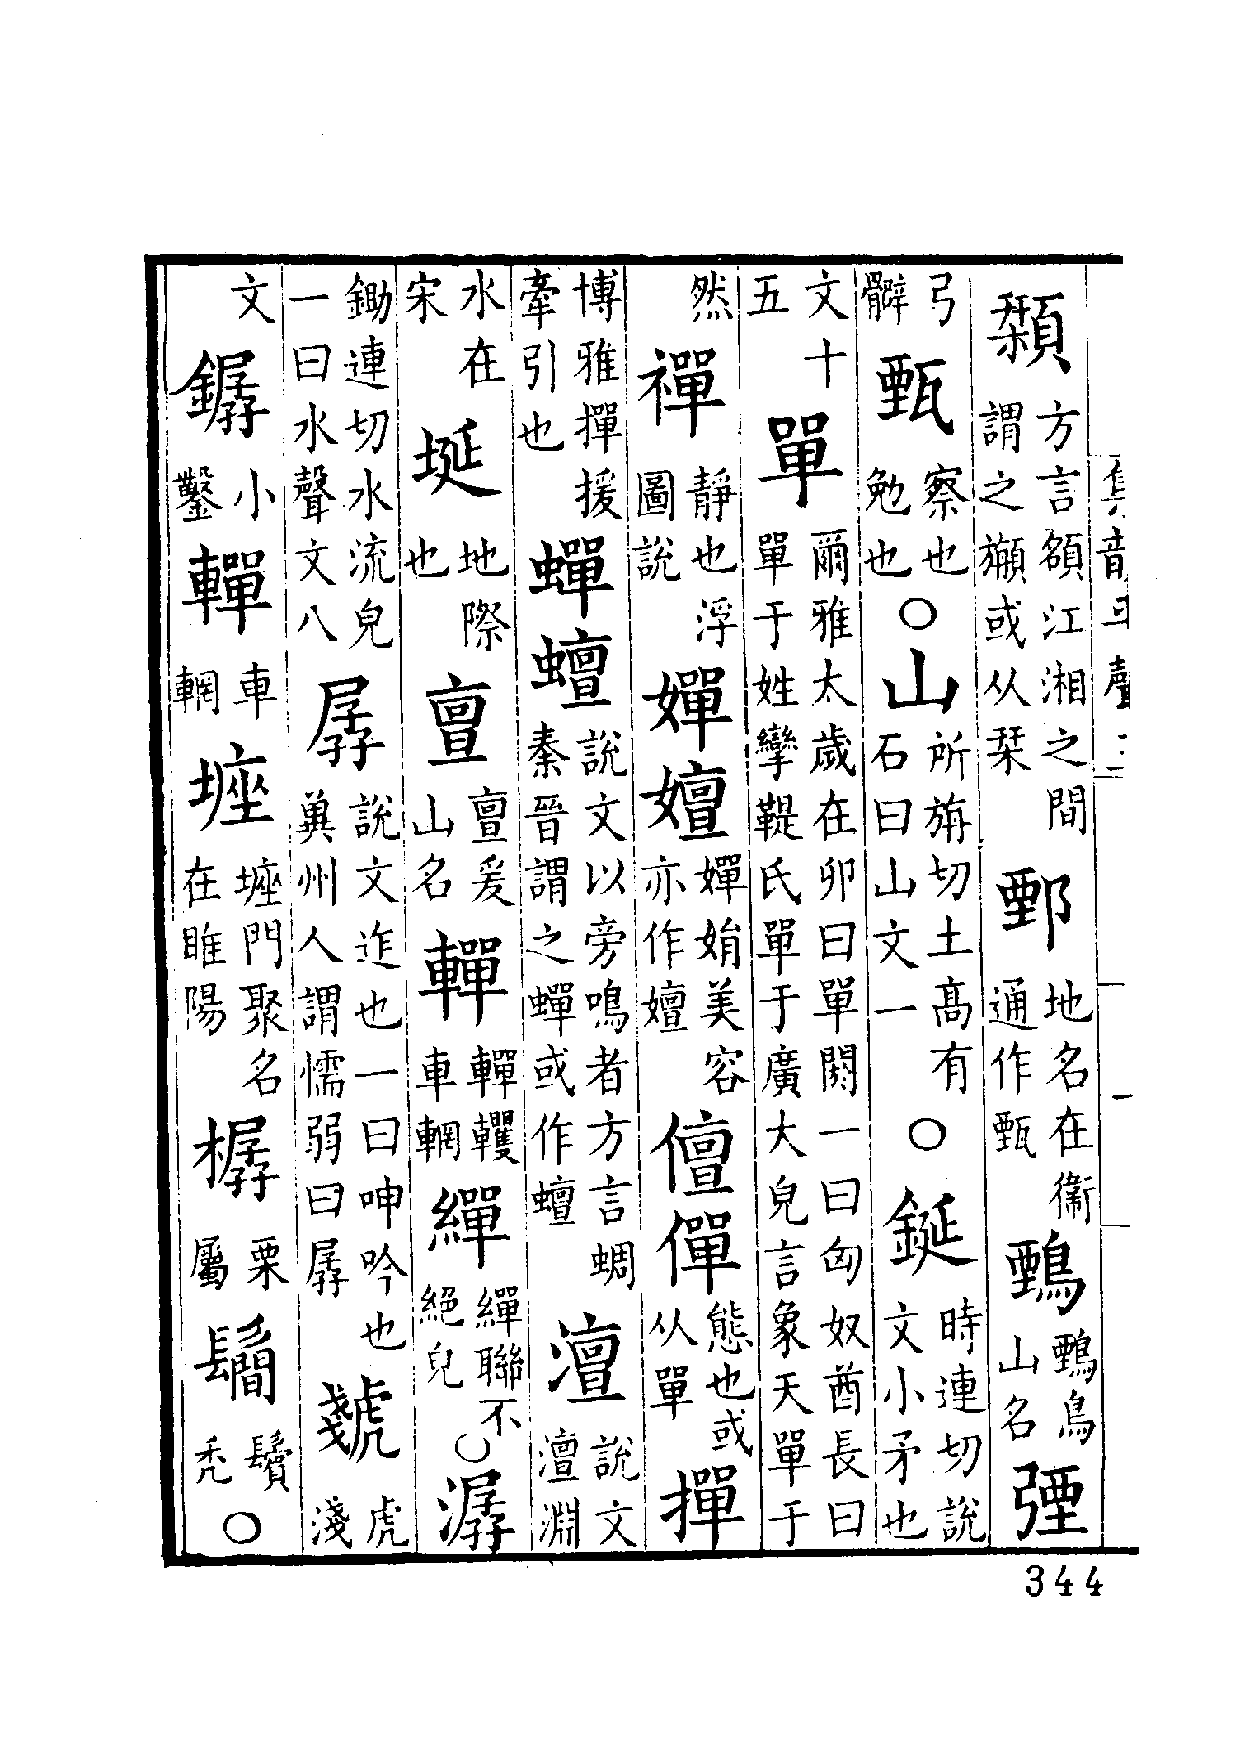 顈方言頟江湘之間謂之㒹或从栞鄄地名在衞通作甄鷣鷣鳥山名彊
弓髀甄察也勉也〇山所旃切土高有石曰山文一〇鋋時連切說文小矛也
文十五單爾雅太歲在卯曰單閼一曰匈奴酋長曰單于姓孿鞮氏單于廣大皃言象天單于
然禪靜也浮圖說嬋嬗嬋娟美容亦作嬗儃僤態也或从單撣
博雅撣援牽引也蟬蟺說文以旁鳴者方言蜩秦晉謂之蟬或作蟺澶說文澶淵
水在宋埏地際也亶亶爰山名轋轋轣車輞繟繟聯不絕皃〇潺
鋤連切水流皃一曰水聲文八孱說文迮也一曰呻吟也冀州人謂懦弱曰孱虥虎淺
文鏟小鑿轋車輞㘸㘸門聚名在睢陽樼栗屬鬜鬢禿〇
集韻平聲三
344